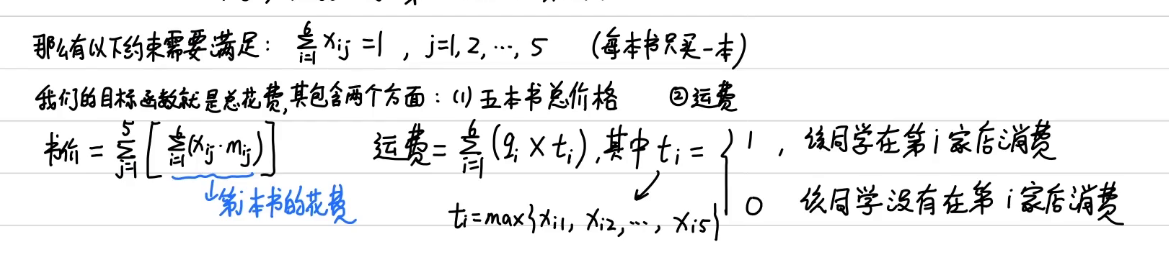 那么有以下约束需要满足: ∑_{i=1}^{6} x_{ij} = 1 , j=1, 2, ⋯, 5 (每本书只买一本)
我们的目标函数就是总花费,其包含两个方面: (1) 五本书总价格 ②运费
书价 = ∑_{j=1}^{5} [ ∑_{i=1}^{6} (x_{ij}·m_{ij}) ] 运费 = ∑_{i=1}^{6} (q_i × t_i), 其中 t_i = { 1 , 该同学在第 i 家店消费
↓第j本书的花费 0 该同学没有在第 i 家店消费
t_i = max{x_{i1}, x_{i2}, ⋯, x_{i5}}